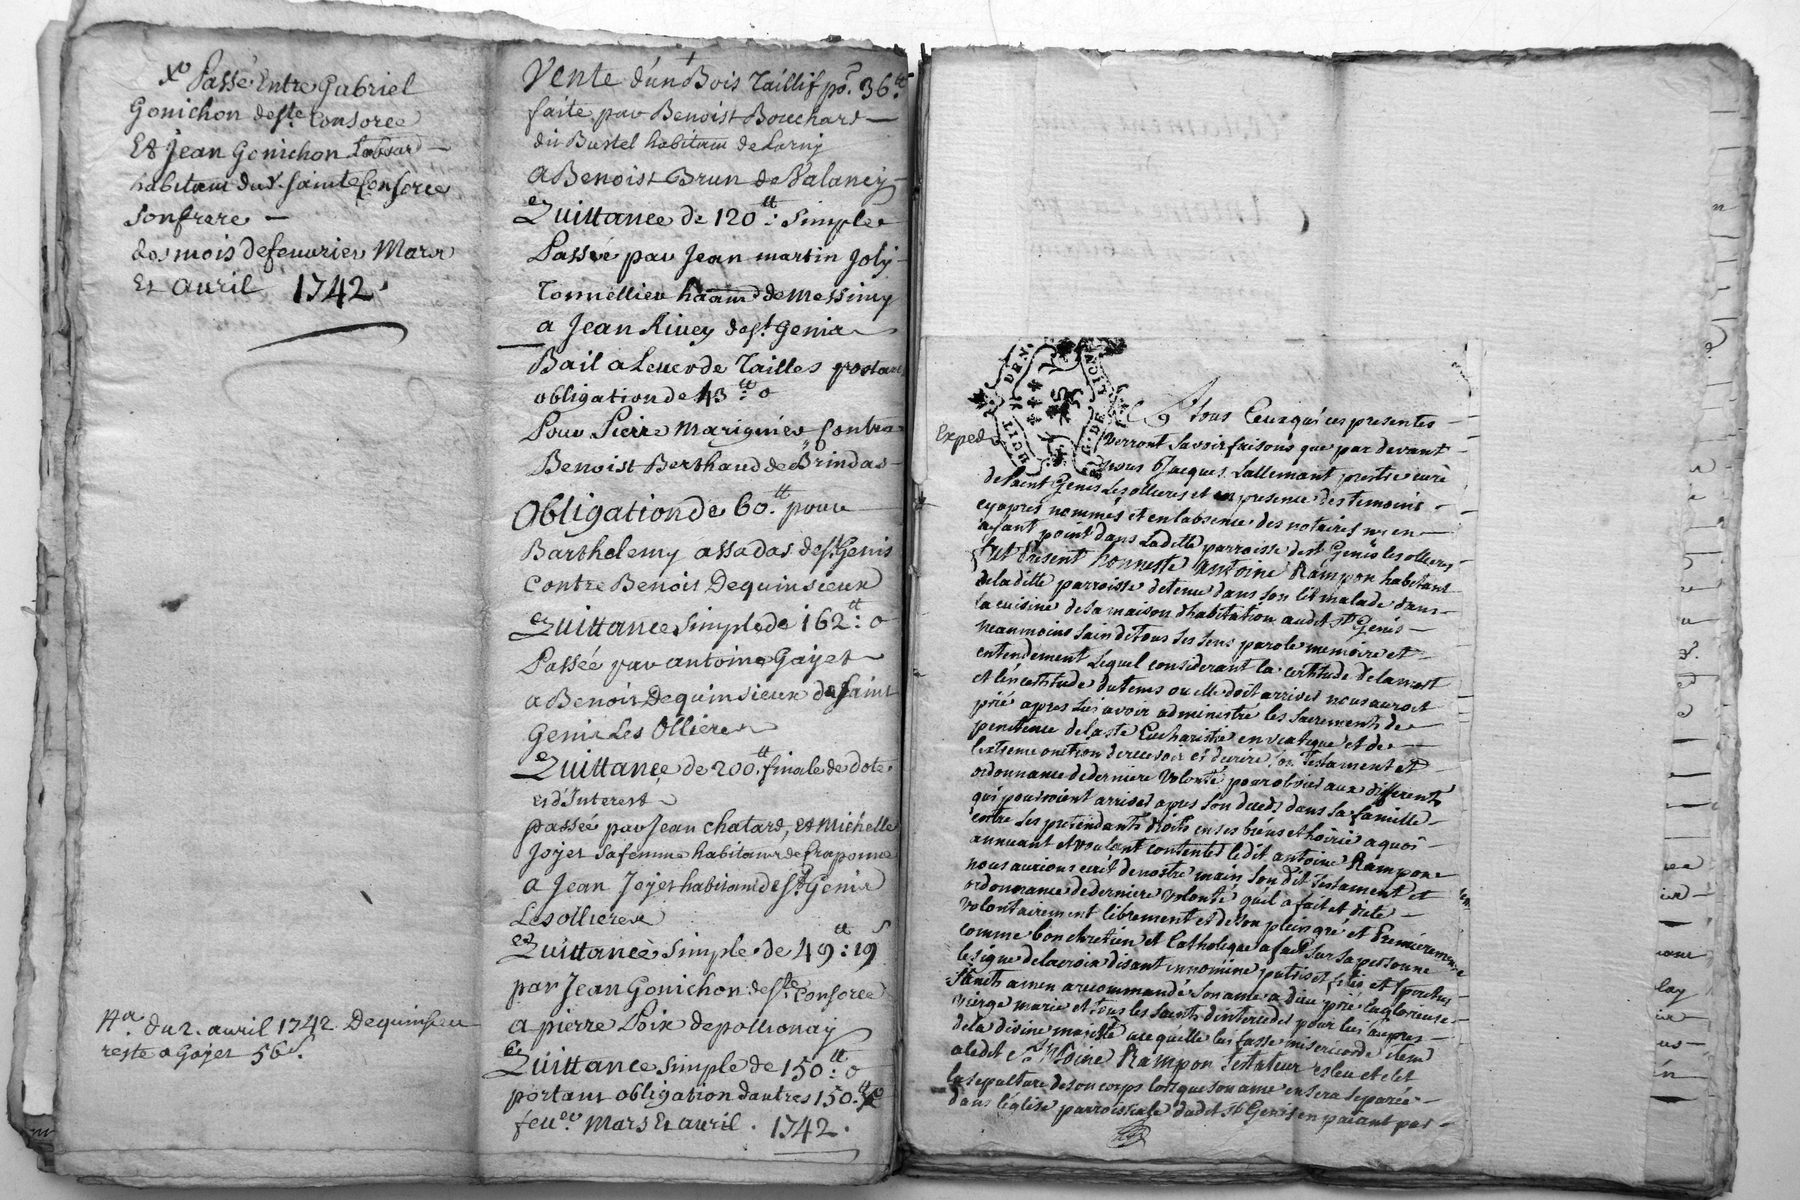 Xo Passé Entre Gabriel
Gonichon de Ste Consorce
Et Jean Gonichon Labour
habitant dud. Sainte Consorce
Son frere
des mois de feuvrier Mars
Et avril 1742.
Na. du 2. avril 1742 Dequinsieu
reste a Gayet 56 s.
Vente d'un Bois Taillif po. 36 tt
faite par Benoist Bouchard
du Bustel habitant de
a Benoist Brun de Valancy
Quittance de 120 tt: simple
Passée par Jean martin Joly
Tonnellier haant de Messimy
a Jean Rivey de St Genis
Bail a Lever de Tailles portant
obligation de 43 tt: 0
Pour Pierre Marignier Contre
Benoist Berthaud de Brindas
Obligation de 60 tt. pour
Barthelemy assadas de St Genis
Contre Benois Dequinsieux
Quittance Simple de 162 tt: 0
Passée par antoine Gayet
a Benois Dequinsieux de Saint
Genis Les Ollieres
Quittance de 200 tt. finale de dote
et d'Interest
passée par Jean chatard, et Michelle
Joyet sa femme habitants de Craponne
a Jean Joyet habitant de St Genis
Les ollieres
Quittance simple de 49 tt: 19 s
par Jean Gonichon de Ste Consorce
a pierre Poix de pollionay
Quittance simple de 150 tt: 0
portant obligation dautres 150 tt
feuer. Mars Et avril. 1742.
Exped
GEN. DE LYON
A Tous Ceux qui ces presentes
verront Savoir faisons que par devant
nous Jacques Lallemant prestre curé
de Saint Genis Les ollieres et en presence des temoins
cy apres nommés et en labsence des notaires ny en
ayant point dans Laditte parroisse de St Genis les ollieres
fut Present honneste antoine Rampon habitant
de laditte parroisse detenu dans son lit malade dans
la cuisine de sa maison d'habitation audit St Genis
neanmoins sain de tous ses sens parole memoire et
entendement Lequel considerant la certitude de la mort
et l'incertitude du tems ou elle doit arriver nous auroit
prié apres lui avoir administré les sacrements de
penitence de la Ste Eucharistie en viatique et de
lextreme onction de recevoir et d'ecrire son testament et
ordonnance de derniere volonté pour obvier aux differents
qui pourroient arriver apres son deceds dans sa famille
entre les pretendants droits en ses biens et hoirie a quoi
annuant et voulant contenter ledit antoine Rampon
nous aurions ecrit de nostre main son dit testament et
ordonnance de derniere volonté qu'il a fait et dicté
volontairement librement et de son plein gré et Premierement
comme bon chretien et Catholique a fait sur sa personne
le signe de la croix disant in nomine patris et filii et spiritus
Sancti amen a recommandé son ame a dieu prié la glorieuse
vierge marie et tous les saints d'interceder pour lui aupres
de la divine majesté ace quelle lui fasse misericorde item
a ledit Antoine Rampon Testateur esleu et elit
la sepulture de son corps lorsque son ame en sera separée
dans l'église parroissiale dudit St Genis en paiant par